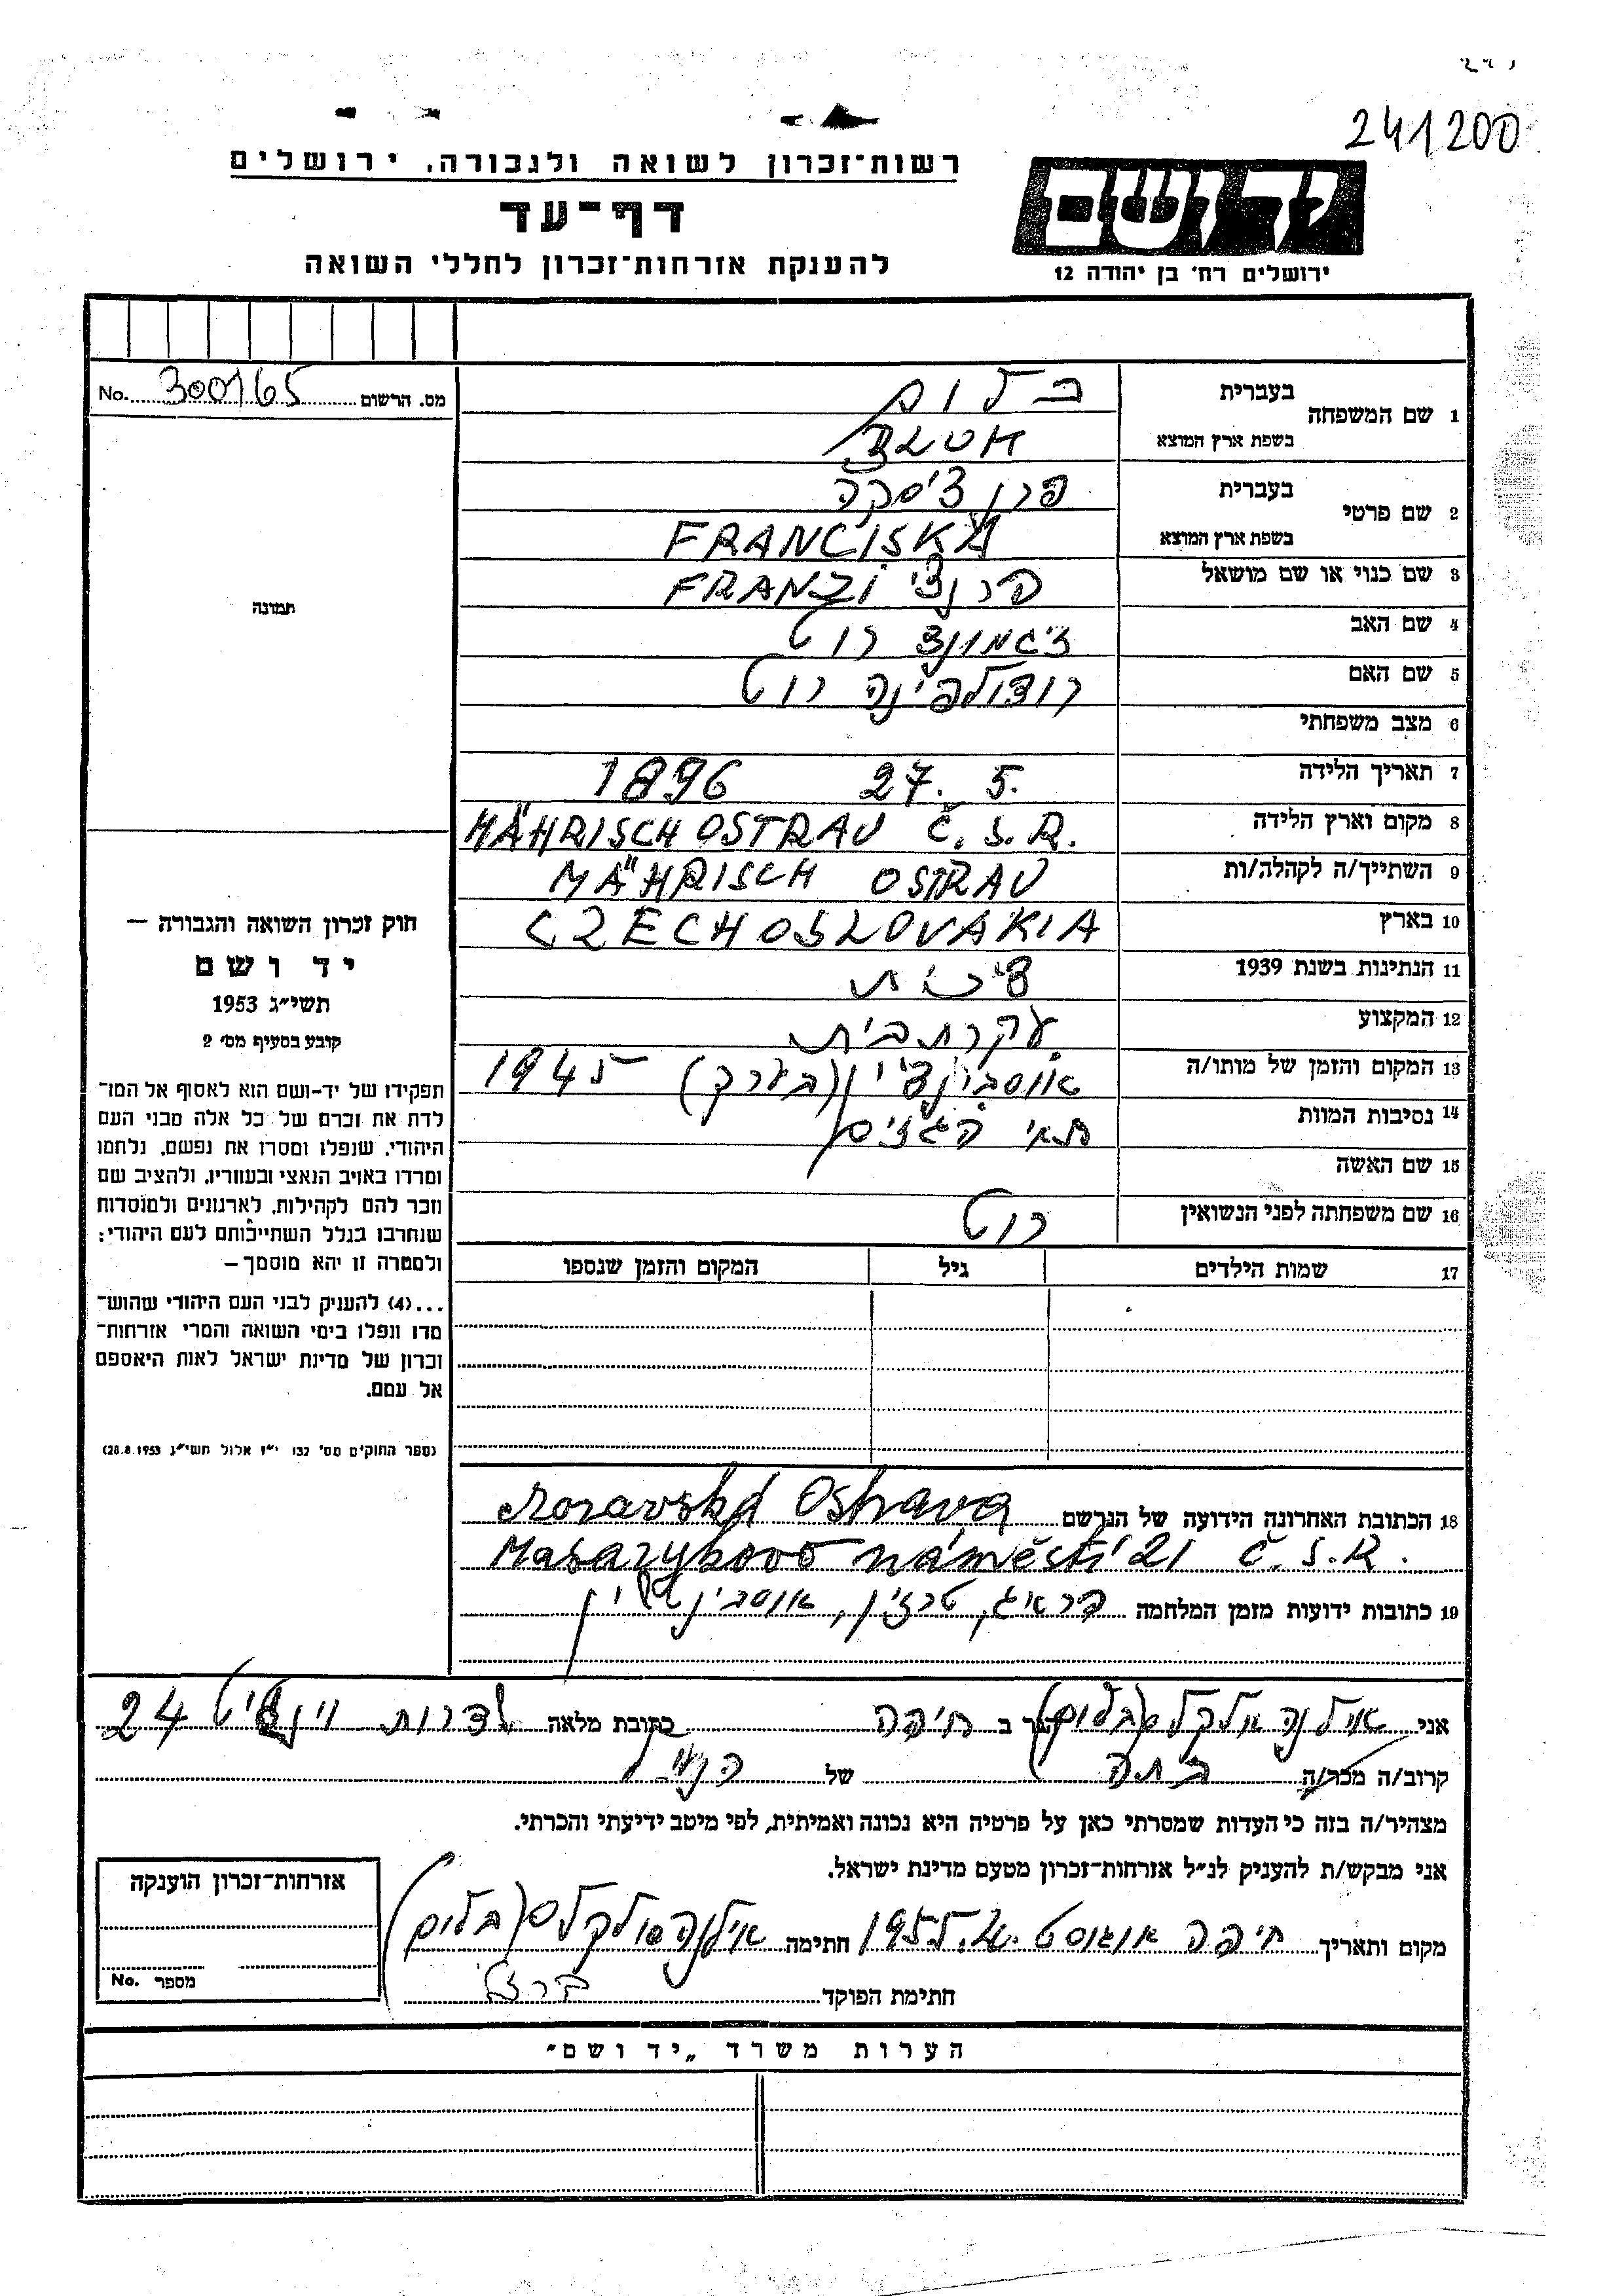 241200
רשות־זכרון לשואה ולגבורה, ירושלים
דף־עד
להענקת אזרחות־זכרון לחללי השואה
יד ושם
ירושלים רח' בן יהודה 12
מס. הרשום No. 300165
תמונה
חוק זכרון השואה והגבורה —
יד ושם
תשי״ג 1953
קובע בסעיף מס׳ 2
תפקידו של יד-ושם הוא לאסוף אל המו־
לדת את זכרם של כל אלה מבני העם
היהודי, שנפלו ומסרו את נפשם, נלחמו
ומרדו באויב הנאצי ובעוזריו, ולהציב שם
וזכר להם לקהילות, לארגונים ולמוסדות
שנחרבו בגלל השתייכותם לעם היהודי;
ולמטרה זו יהא מוסמך —
...(4) להעניק לבני העם היהודי שהוש־
מדו ונפלו בימי השואה והמרי אזרחות־
זכרון של מדינת ישראל לאות היאספם
אל עמם.
(ספר החוקים מס' 132 י״ז אלול תשי״ג 28.8.1953)
1 שם המשפחה בעברית בלום
בשפת ארץ המוצא
2 שם פרטי בעברית פרנציסקה
בשפת ארץ המוצא FRANCISKA
3 שם כנוי או שם מושאל פרנצי FRANZI
4 שם האב זיגמונד רוט
5 שם האם רודולפינה רוט
6 מצב משפחתי
7 תאריך הלידה 27. 5. 1896
8 מקום וארץ הלידה MÄHRISCH OSTRAU Č. S. R.
9 השתייך/ה לקהלה/ות MÄHRISCH OSTRAU
10 בארץ CZECHOSLOVAKIA
11 הנתינות בשנת 1939 צ'כית
12 המקצוע עקרת בית
13 המקום והזמן של מותו/ה אוסבינצ'ין (בערך) 1945
14 נסיבות המוות תאי הגזים
15 שם האשה
16 שם משפחתה לפני הנשואין רוט
17 שמות הילדים גיל המקום והזמן שנספו
18 הכתובת האחרונה הידועה של הנרשם Moravská Ostrava
Masarykovo náměstí 21 Č. S. R.
19 כתובות ידועות מזמן המלחמה פראג, טרזין, אוסבינצ'ין
אני אילנה (בלום) הגר ב חיפה כתובת מלאה שדרות וינגייט 24
קרוב/ה מכר/ה בתה של הנ״ל
מצהיר/ה בזה כי העדות שמסרתי כאן על פרטיה היא נכונה ואמיתית, לפי מיטב ידיעתי והכרתי.
אני מבקש/ת להעניק לנ״ל אזרחות־זכרון מטעם מדינת ישראל.
מקום ותאריך חיפה אוגוסט 1955 חתימה אילנה (בלום)
חתימת הפוקד
אזרחות־זכרון הוענקה
מספר No.
הערות משרד „יד ושם״